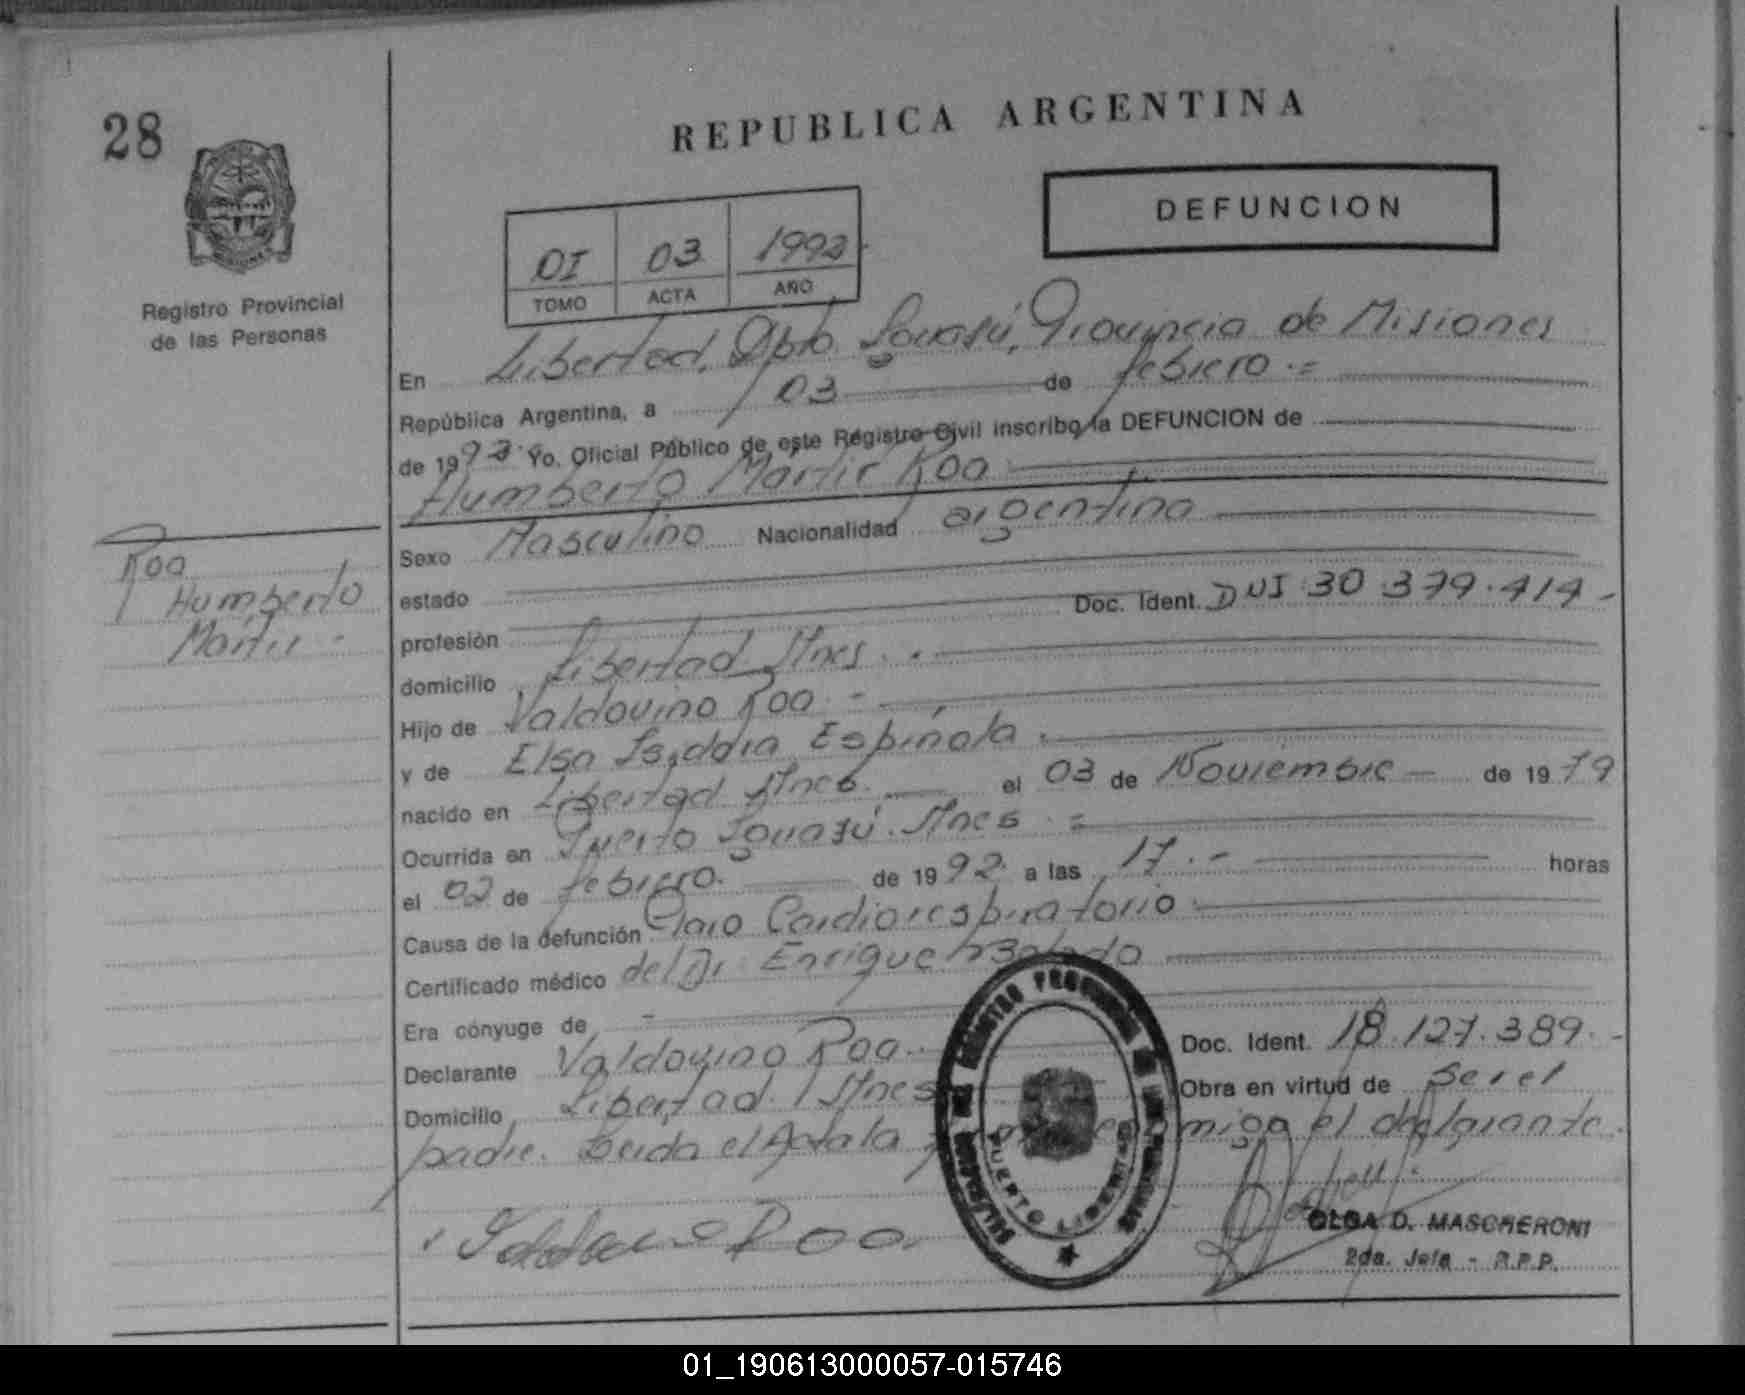 28
REPUBLICA ARGENTINA
DEFUNCION
Registro Provincial
de las Personas
DI 03 1992
TOMO ACTA AÑO
En Libertad, Dpto. Iguazú, Provincia de Misiones
República Argentina, a 03 de febrero.=
de 1992 Yo. Oficial Público de este Registro Civil inscribo la DEFUNCION de
Humberto Martir Roa
Roa
Humberto
Martir -
Sexo Masculino Nacionalidad argentina
estado
profesión Doc. Ident. DNI 30.379.414-
domicilio Libertad Mnes.
Hijo de Valdovino Roa -
y de Elsa Isidora Espinola.
nacido en Libertad Mnes. el 03 de Noviembre - de 1979
Ocurrida en Puerto Iguazú. Mnes =
el 02 de febrero. de 1992 a las 17.- horas
Causa de la defunción Paro Cardiorespiratorio
Certificado médico del Dr. Enrique
Era cónyuge de -
Declarante Valdovino Roa.- Doc. Ident. 18.127.389.-
Domicilio Libertad Mnes Obra en virtud de ser el
padre. Leida el Acta la el declarante.
Roa
PUERTO LIBERTAD
OLGA D. MASCHERONI
2da. Jefa - R.P.P.
01_190613000057-015746